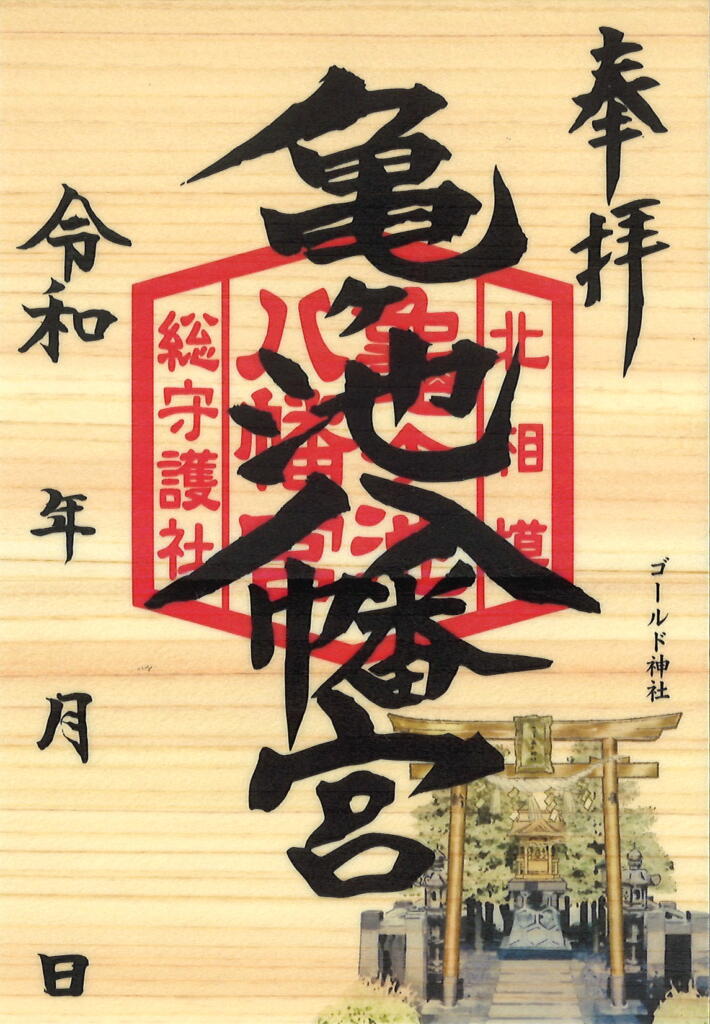 奉拝
北相模
亀ヶ池
八幡宮
総守護社
亀ヶ池八幡宮
令和 年 月 日
ゴールド神社